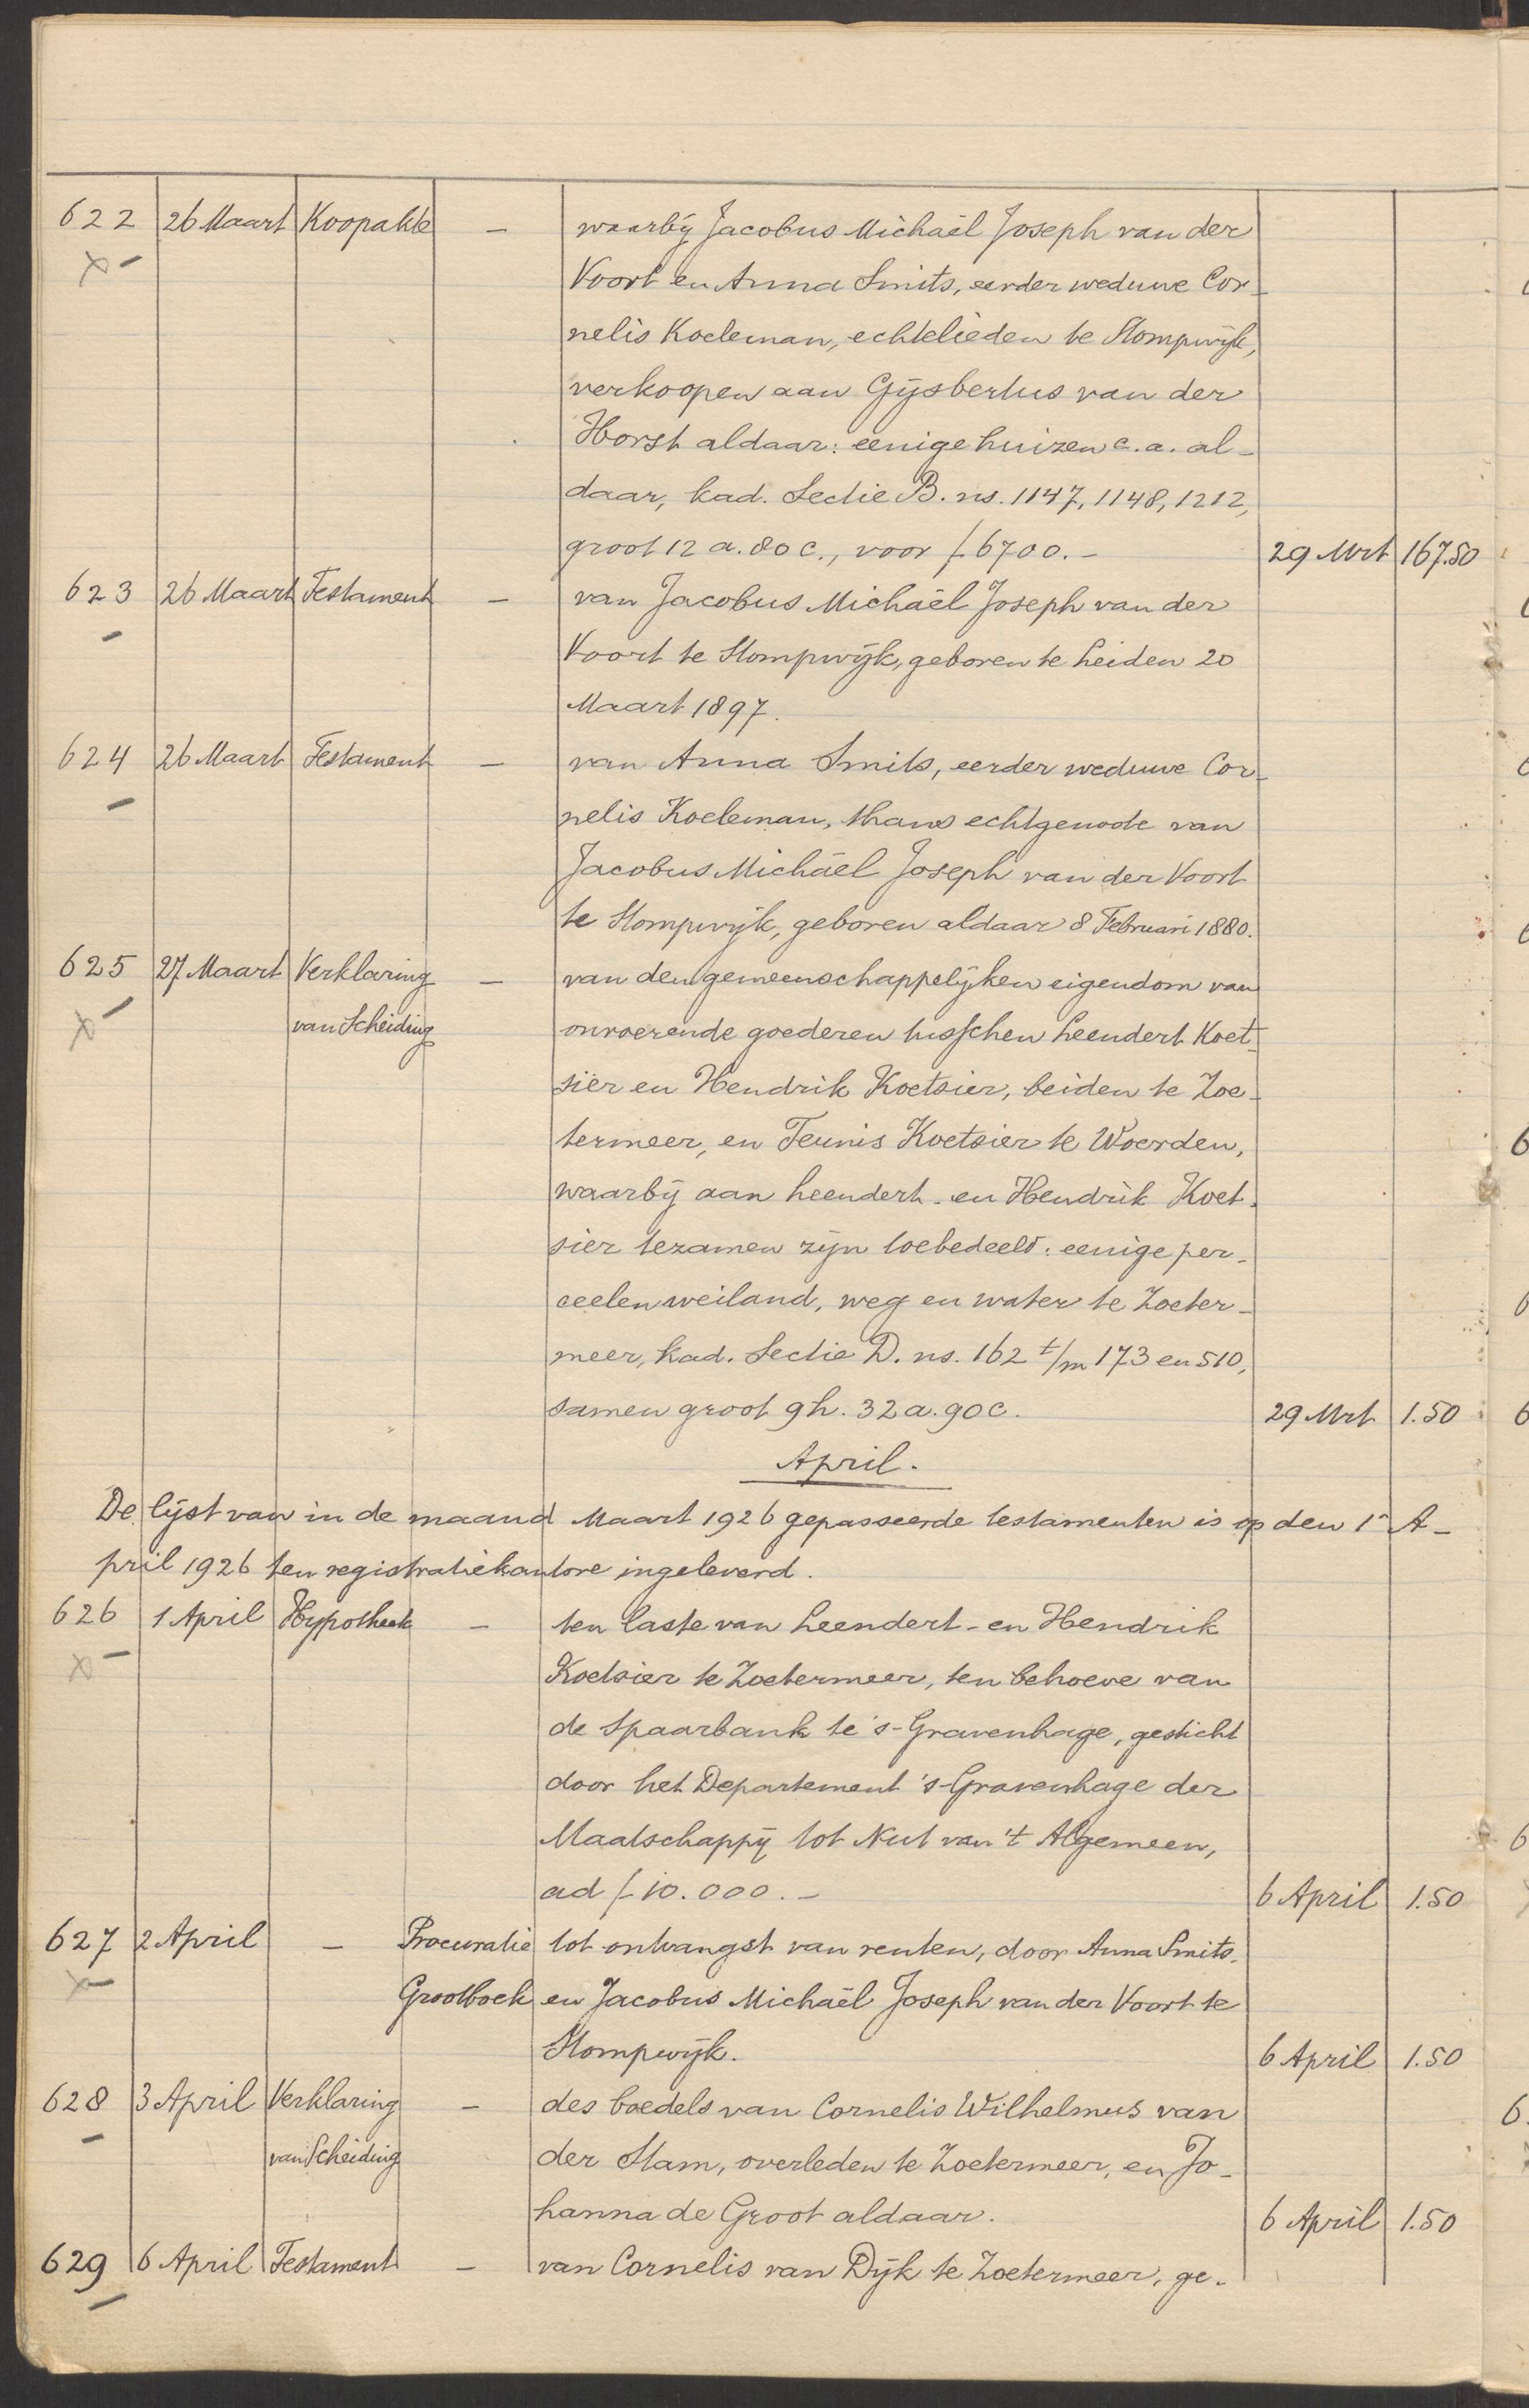 622 26 Maart Koopakte – waarbij Jacobus Michaël Joseph van der
Voort en Anna Smits, eerder weduwe Cor-
nelis Koeleman, echtelieden te Stompwijk,
verkoopen aan Gijsbertus van der
Horst aldaar: eenige huizen c.a. al-
daar, kad. Sectie B. ns. 1147, 1148, 1212,
groot 12 a. 80 c., voor f 6700.– 29 Mrt 167.50
623 26 Maart Testament – van Jacobus Michaël Joseph van der
Voort te Stompwijk, geboren te Leiden 20
Maart 1897.
624 26 Maart Testament – van Anna Smits, eerder weduwe Cor-
nelis Koeleman, thans echtgenoote van
Jacobus Michaël Joseph van der Voort
te Stompwijk, geboren aldaar 8 Februari 1880.
625 27 Maart Verklaring – van den gemeenschappelijken eigendom van
van Scheiding onroerende goederen tusschen Leendert Koet-
sier en Hendrik Koetsier, beiden te Zoe-
termeer, en Teunis Koetsier te Woerden,
waarbij aan Leendert- en Hendrik Koet-
sier tezamen zijn toebedeeld: eenige per-
ceelen weiland, weg en water te Zoeter-
meer, kad. Sectie D. ns. 162 t/m 173 en 510,
samen groot 9 h. 32 a. 90 c. 29 Mrt 1.50
April.
De lijst van in de maand Maart 1926 gepasseerde testamenten is op den 1n A-
pril 1926 ten registratiekantore ingeleverd.
626 1 April Hypotheek – ten laste van Leendert- en Hendrik
Koetsier te Zoetermeer, ten behoeve van
de Spaarbank te 's-Gravenhage, gesticht
door het Departement 's-Gravenhage der
Maatschappij tot Nut van 't Algemeen,
ad f 10.000.– 6 April 1.50
627 2 April – Procuratie tot ontvangst van renten, door Anna Smits
Grootboek en Jacobus Michaël Joseph van der Voort te
Stompwijk. 6 April 1.50
628 3 April Verklaring – des boedels van Cornelis Wilhelmus van
van Scheiding der Stam, overleden te Zoetermeer, en Jo-
hanna de Groot aldaar. 6 April 1.50
629 6 April Testament – van Cornelis van Dijk te Zoetermeer, ge-